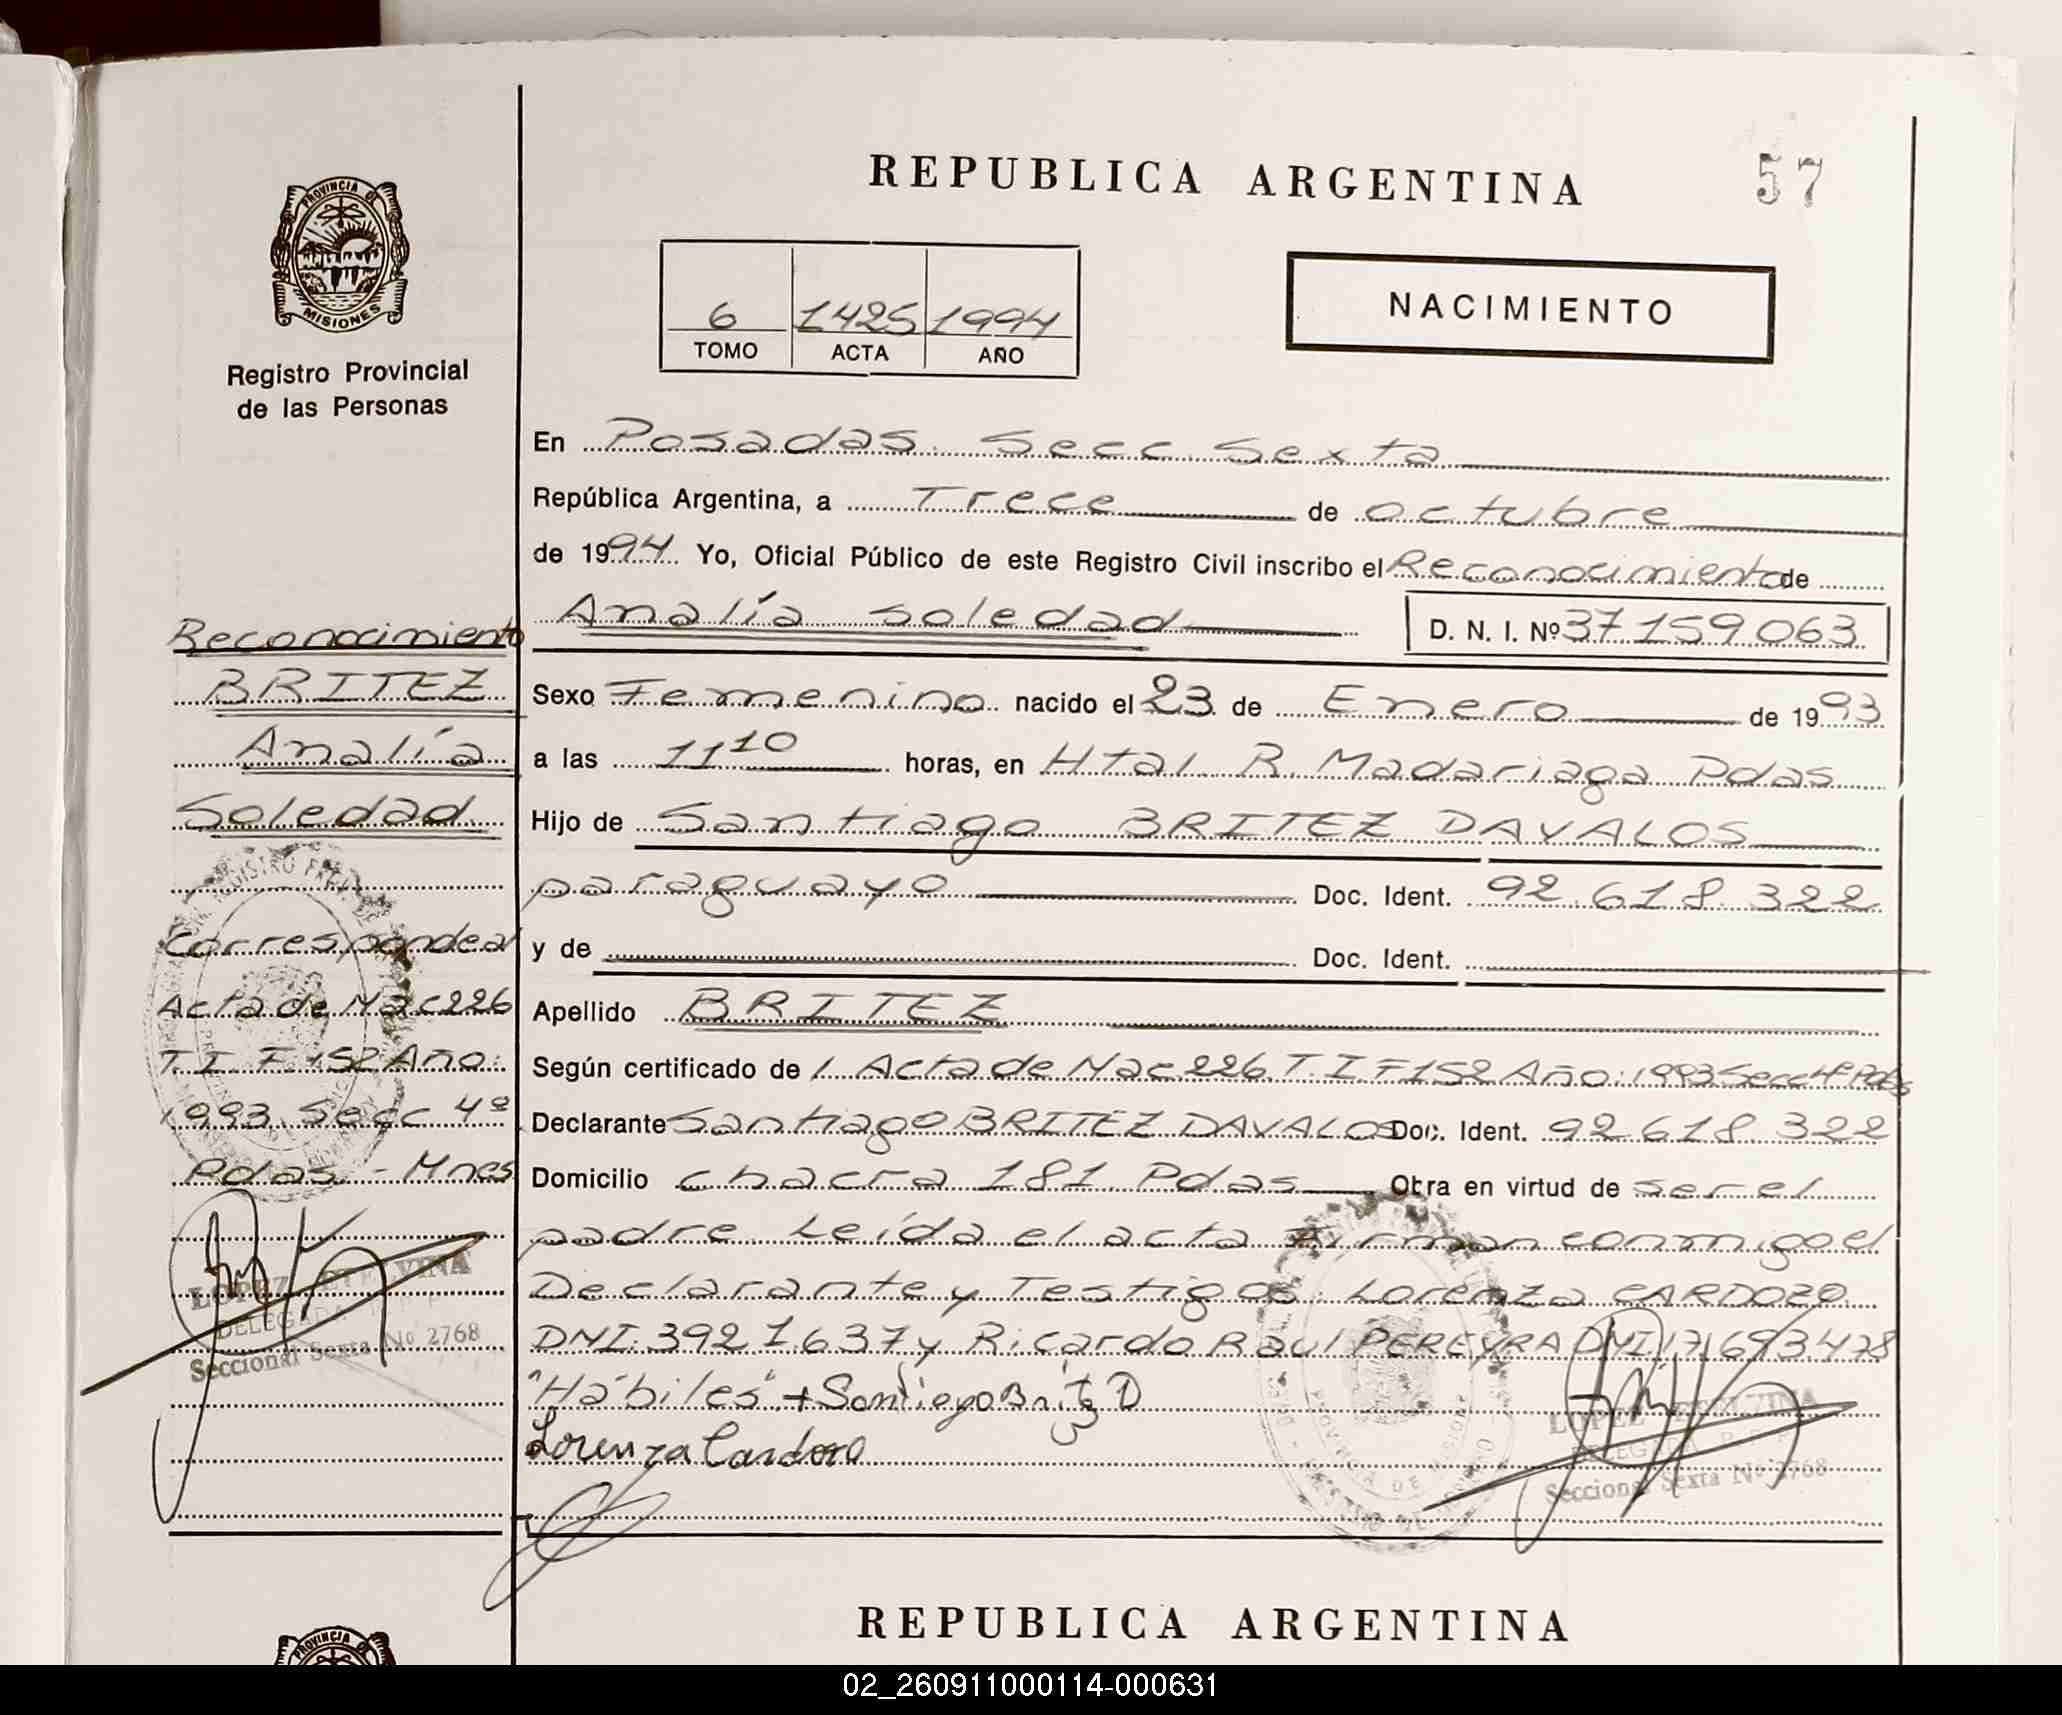 REPUBLICA ARGENTINA
57
PROVINCIA DE
MISIONES
Registro Provincial
de las Personas
6 1425 1994
TOMO ACTA AÑO
NACIMIENTO
En Posadas Secc. Sexta
República Argentina, a Trece de octubre
de 1994 Yo, Oficial Público de este Registro Civil inscribo el Reconocimiento de
Analía Soledad D. N. I. Nº 37 159 063
Sexo Femenino nacido el 23 de Enero de 1993
a las 11 10 horas, en Htal. R. Madariaga Pdas
Hijo de Santiago BRITEZ DAVALOS
paraguayo Doc. Ident. 92.618.322
y de Doc. Ident.
Apellido BRITEZ
Según certificado de / Acta de Nac 226. T. I. F 152 Año: 1993 Secc 4º Pdas
Declarante Santiago BRITEZ DAVALOS Doc. Ident. 92 618 322
Domicilio chacra 181 Pdas Otra en virtud de ser el
padre. Leída el acta Firman conmigo el
Declarante y Testigos: Lorenza CARDOZO
DNI: 3921637 y Ricardo Raul PEREYRA DNI 17 693 478
"Hábiles" + Santiago Britez D
Lorenza Cardozo
LOPEZ
DELEGADA R. P. P.
Seccional Sexta Nº 2768
Reconocimiento
BRITEZ
Analía
Soledad
Corresponde al
Acta de Nac 226
T. I. F 152 Año:
1993 Secc 4º
Pdas - Mnes
LOPEZ
DELEGADA R. P. P.
Seccional Sexta Nº 2768
REPUBLICA ARGENTINA
PROVINCIA
02_260911000114-000631